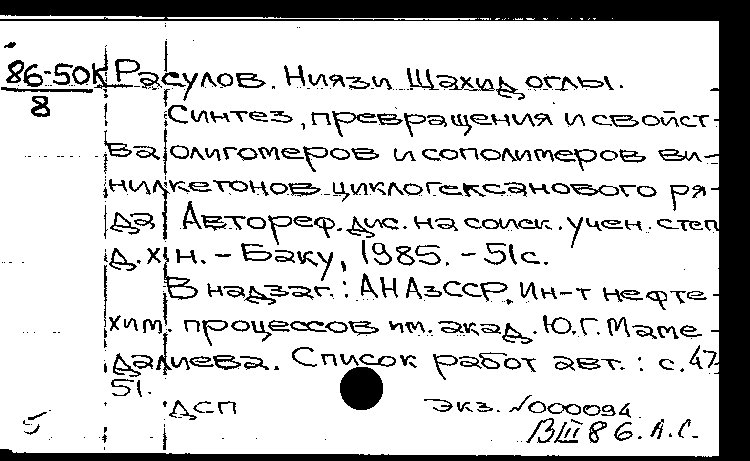 86-50К Расулов. Ниязи Шахид оглы.
8
Синтез, превращения и свойст-
ва олигомеров и сополимеров ви-
нилкетонов циклогексанового ря-
да. Автореф. дис. на соиск. учен. степ
д. х. н. - Баку, 1985. - 51с.
В надзаг.: АН АзССР. Ин-т нефте-
хим. процессов им. акад. Ю.Г. Маме-
далиева. Список работ авт.: с. 47
51.
ДСП экз. №000094
5 BIII 86. А.С.